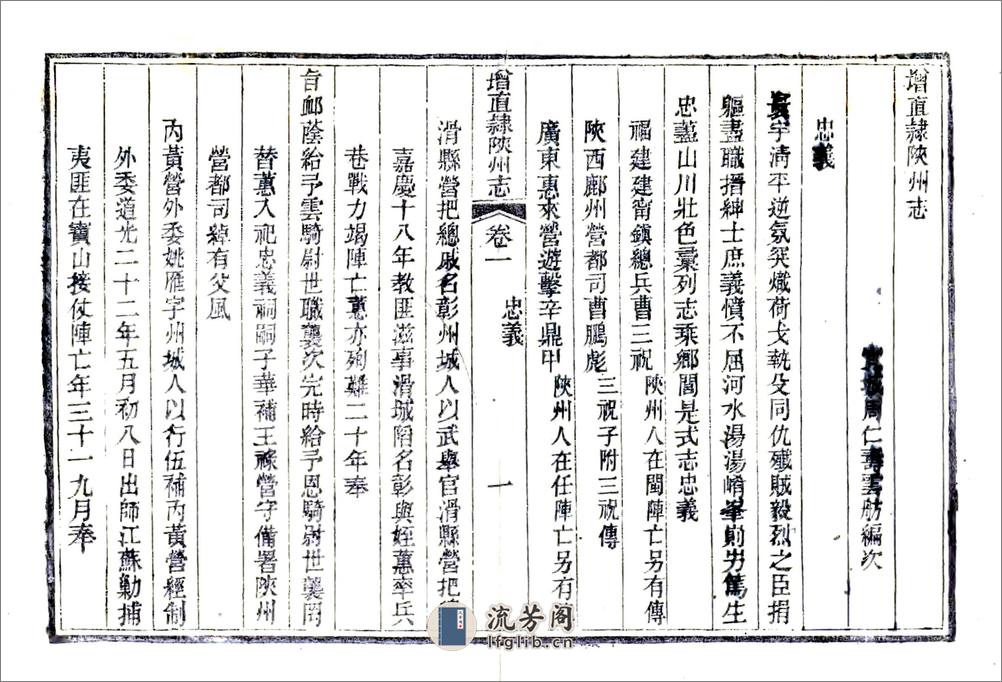 增直隸陝州志
周仁壽雲舫編次
忠義
寰宇清平逆氛突熾荷戈執殳同仇殲賊毅烈之臣捐
軀盡職搢紳士庶義憤不屈河水湯湯崤峯前另篤生
忠藎山川壯色彙列志乘鄉閭是式志忠義
福建建甯鎮總兵曹三祝 陝州人在閩陣亡另有傳
陝西鄜州營都司曹鵬彪 三祝子附三祝傳
廣東惠來營遊擊辛鼎甲 陝州人在任陣亡另有
增直隸陝州志 卷一 忠義 一
滑縣營把總戚名彰州城人以武舉官滑縣營把
嘉慶十八年教匪滋事滑城陷名彰與姪蕙率兵
巷戰力竭陣亡蕙亦殉難二十年奉
旨卹蔭給予雲騎尉世職襲次完時給予恩騎尉世襲罔
替蕙入祀忠義祠嗣子華補王祿營守備署陝州
營都司綽有父風
內黃營外委姚雁字州城人以行伍補內黃營經制
外委道光二十二年五月初八日出師江蘇勦捕
夷匪在寶山接仗陣亡年三十一九月奉
流芳阁
lfglib.cn